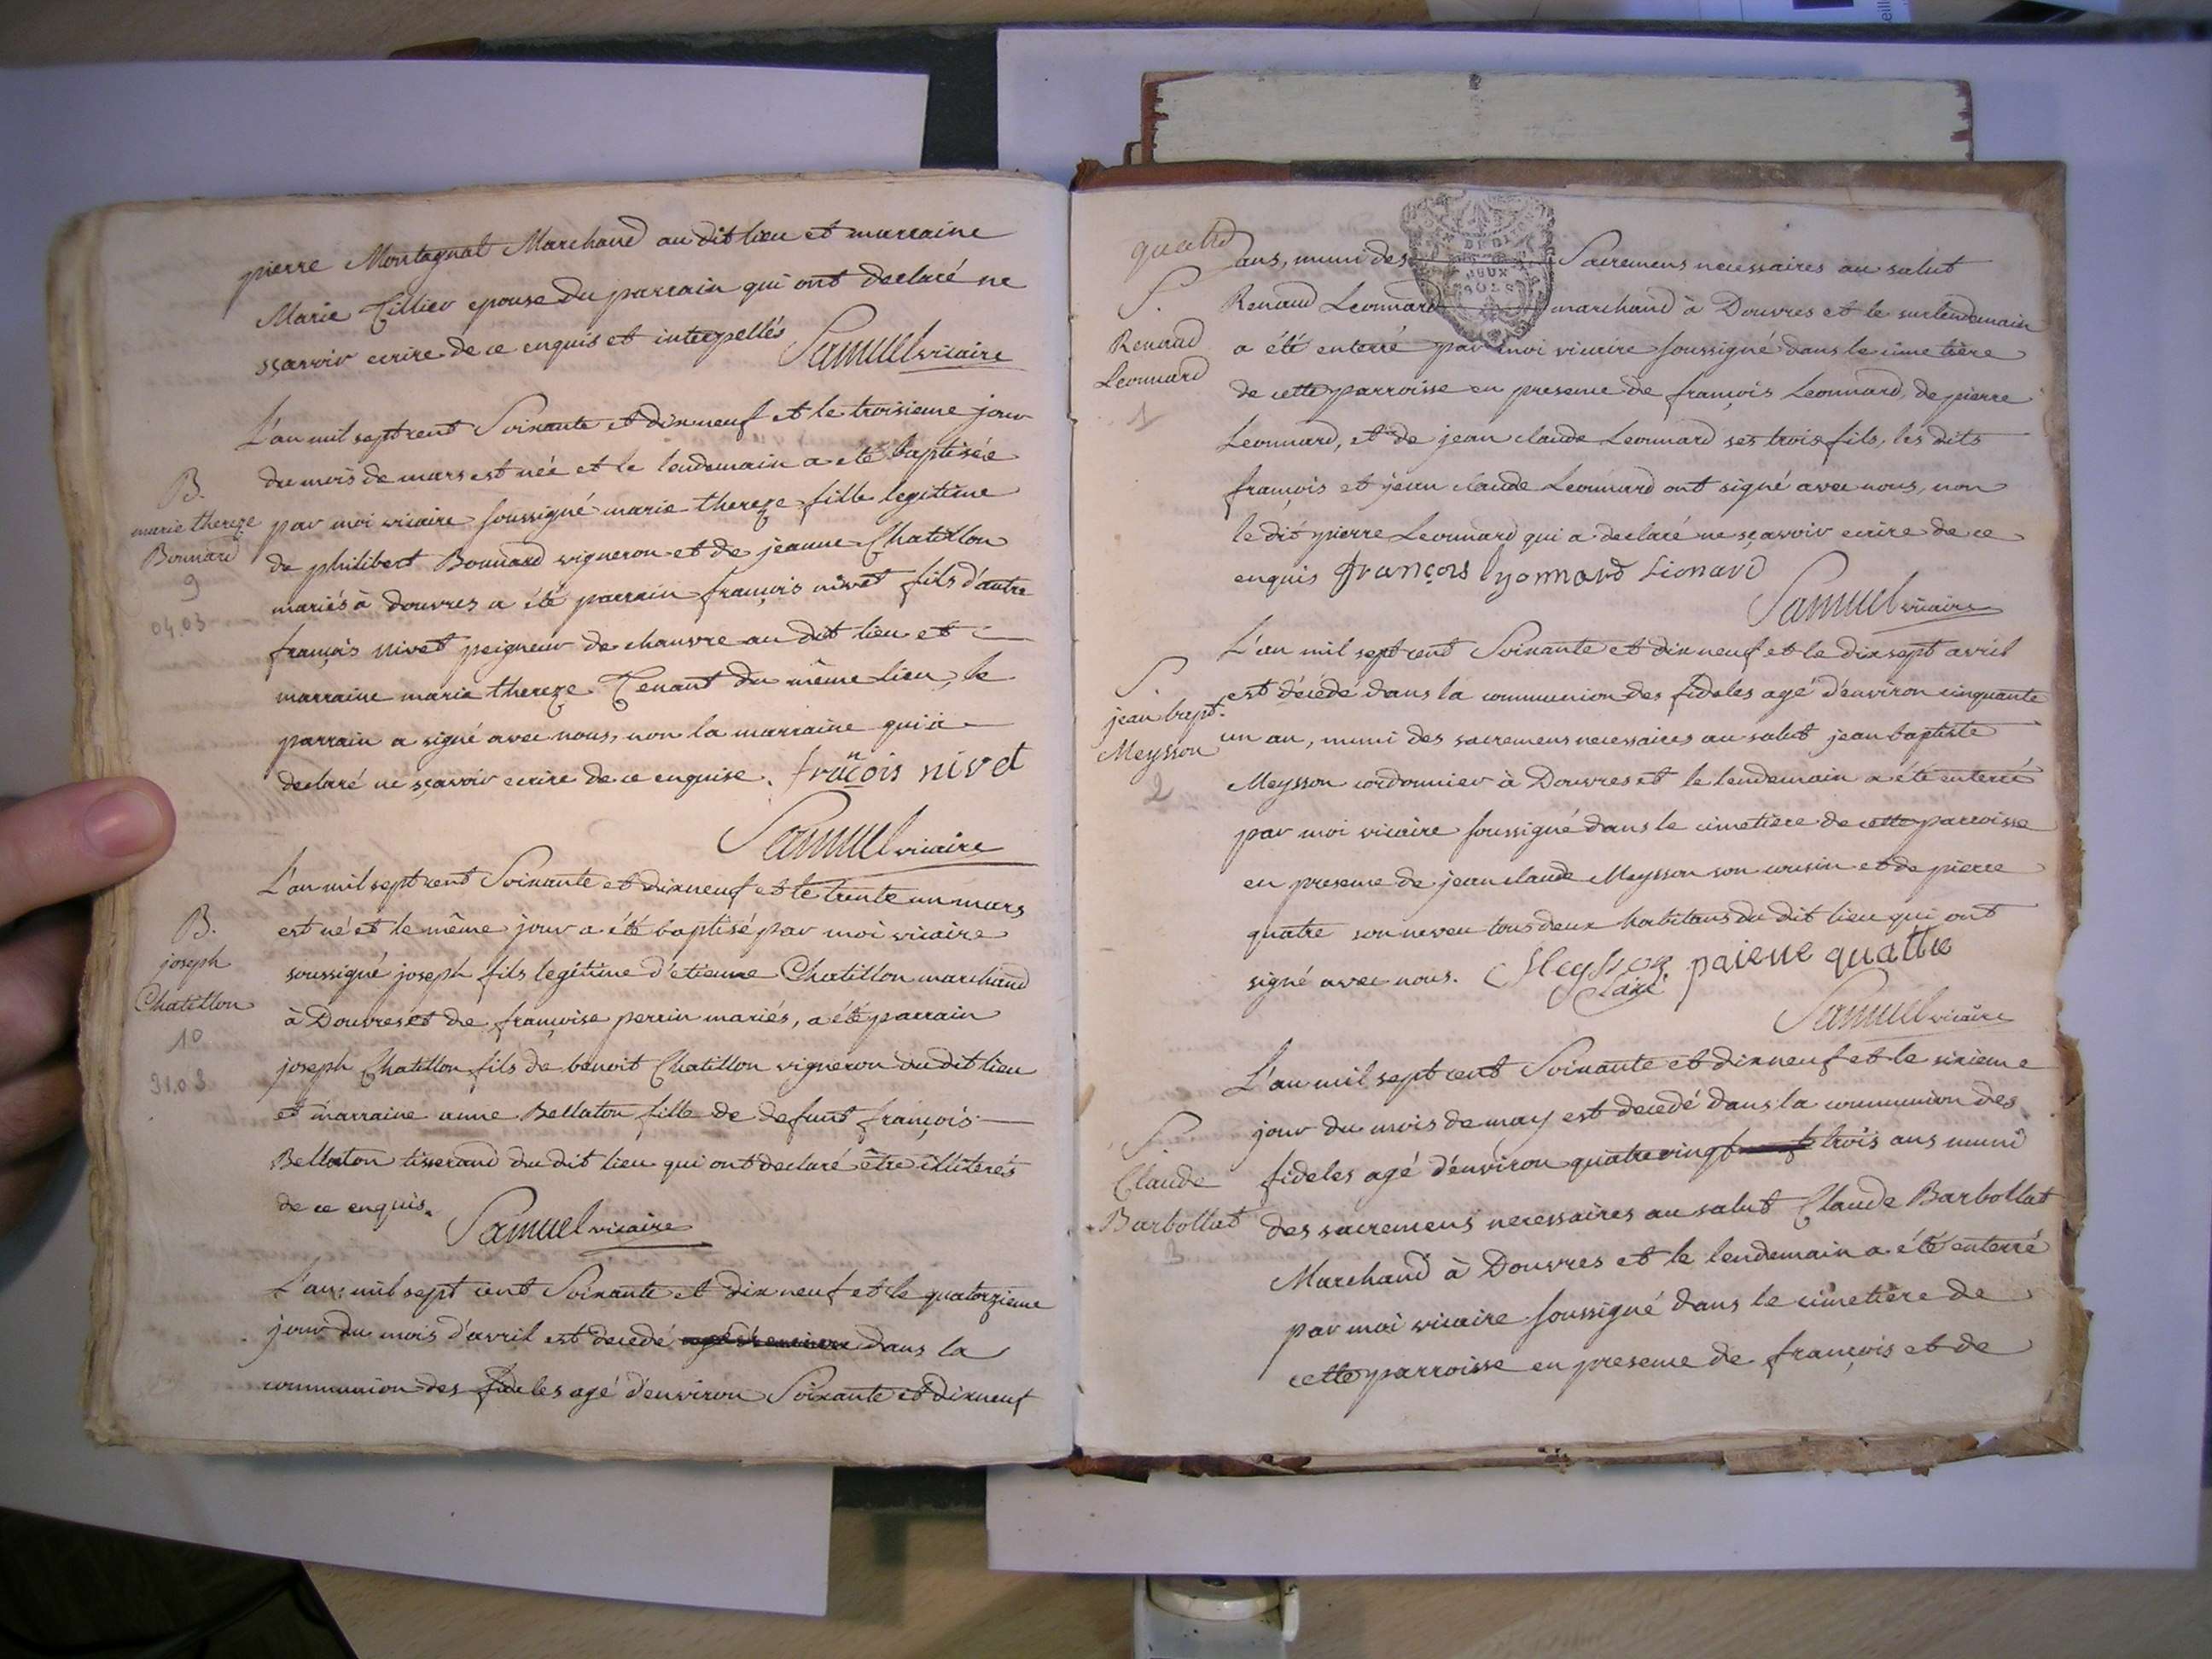 pierre Montagnat Marchand au dit lieu et marraine
Marie Tillier epouse du parrain qui ont declaré ne
sçavoir ecrire de ce enquis et interpellés Samuel vicaire
L'an mil sept cent Soixante et dix neuf et le troisieme jour
du mois de mars est née et le lendemain a eté baptisée
B.
marie thereze
Bonnard
9
04.03
par moi vicaire soussigné marie thereze fille legitime
de philibert Bonnard vigneron et de jeanne Chatillon
mariés à douvres a été parrain françois nivet fils d'autre
françois nivet peigneur de chanvre au dit lieu et
marraine marie thereze Tenant du même lieu, le
parrain a signé avec nous, non la marraine qui a
declaré ne sçavoir ecrire de ce enquise. francois nivet
Samuel vicaire
L'an mil sept cent Soixante et dix neuf et le trente un mars
B.
joseph
Chatillon
10
31.03
est né et le même jour a été baptisé par moi vicaire
soussigné joseph fils legitime d'etienne Chatillon marchand
à Douvres et de françoise perrin mariés, a été parrain
joseph Chatillon fils de benoit Chatillon vigneron du dit lieu
et marraine anne Bellaton fille de defunt françois
Bellaton tisserand du dit lieu qui ont declaré être illiterés
de ce enquis. Samuel vicaire
L'an mil sept cent Soixante et dix neuf et le quatorzieme
jour du mois d'avril est decedé agé d'environ dans la
communion des fideles agé d'environ Soixante et dix neuf
quatre
ans, muni des Sacremens necessaires au salut
S.
Renaud
Leonnard
1
Renaud Leonnard marchand à Douvres et le surlendemain
a été enterré par moi vicaire soussigné dans le cimetière
de cette parroisse en presence de françois Leonnard, de pierre
Leonnard, et de jean claude Leonnard ses trois fils, les dits
françois et jean claude Leonnard ont signé avec nous, non
le dit pierre Leonnard qui a declaré ne sçavoir ecrire de ce
enquis françois lyonnard Lionard
Samuel vicaire
L'an mil sept cent Soixante et dix neuf et le dix sept avril
S.
jean bapt.
Meysson
2
est décedé dans la communion des fideles agé d'environ cinquante
un an, muni des sacremens necessaires au salut jean baptiste
Meysson cordonnier à Douvres et le lendemain a été enterré
par moi vicaire soussigné dans le cimetiere de cette parroisse
en presence de jean claude Meysson son cousin et de pierre
quatre son neveu tous deux habitans du dit lieu qui ont
signé avec nous. Meysson paierre quattre
Samuel vicaire
L'an mil sept cent Soixante et dix neuf et le sixieme
S.
Claude
Barbollat
3
jour du mois de may est decedé dans la communion des
fideles agé d'environ quatre vingt trois ans muni
des sacremens necessaires au salut Claude Barbollat
Marchand à Douvres et le lendemain a été enterré
par moi vicaire soussigné dans le cimetière de
cette parroisse en presence de françois et de